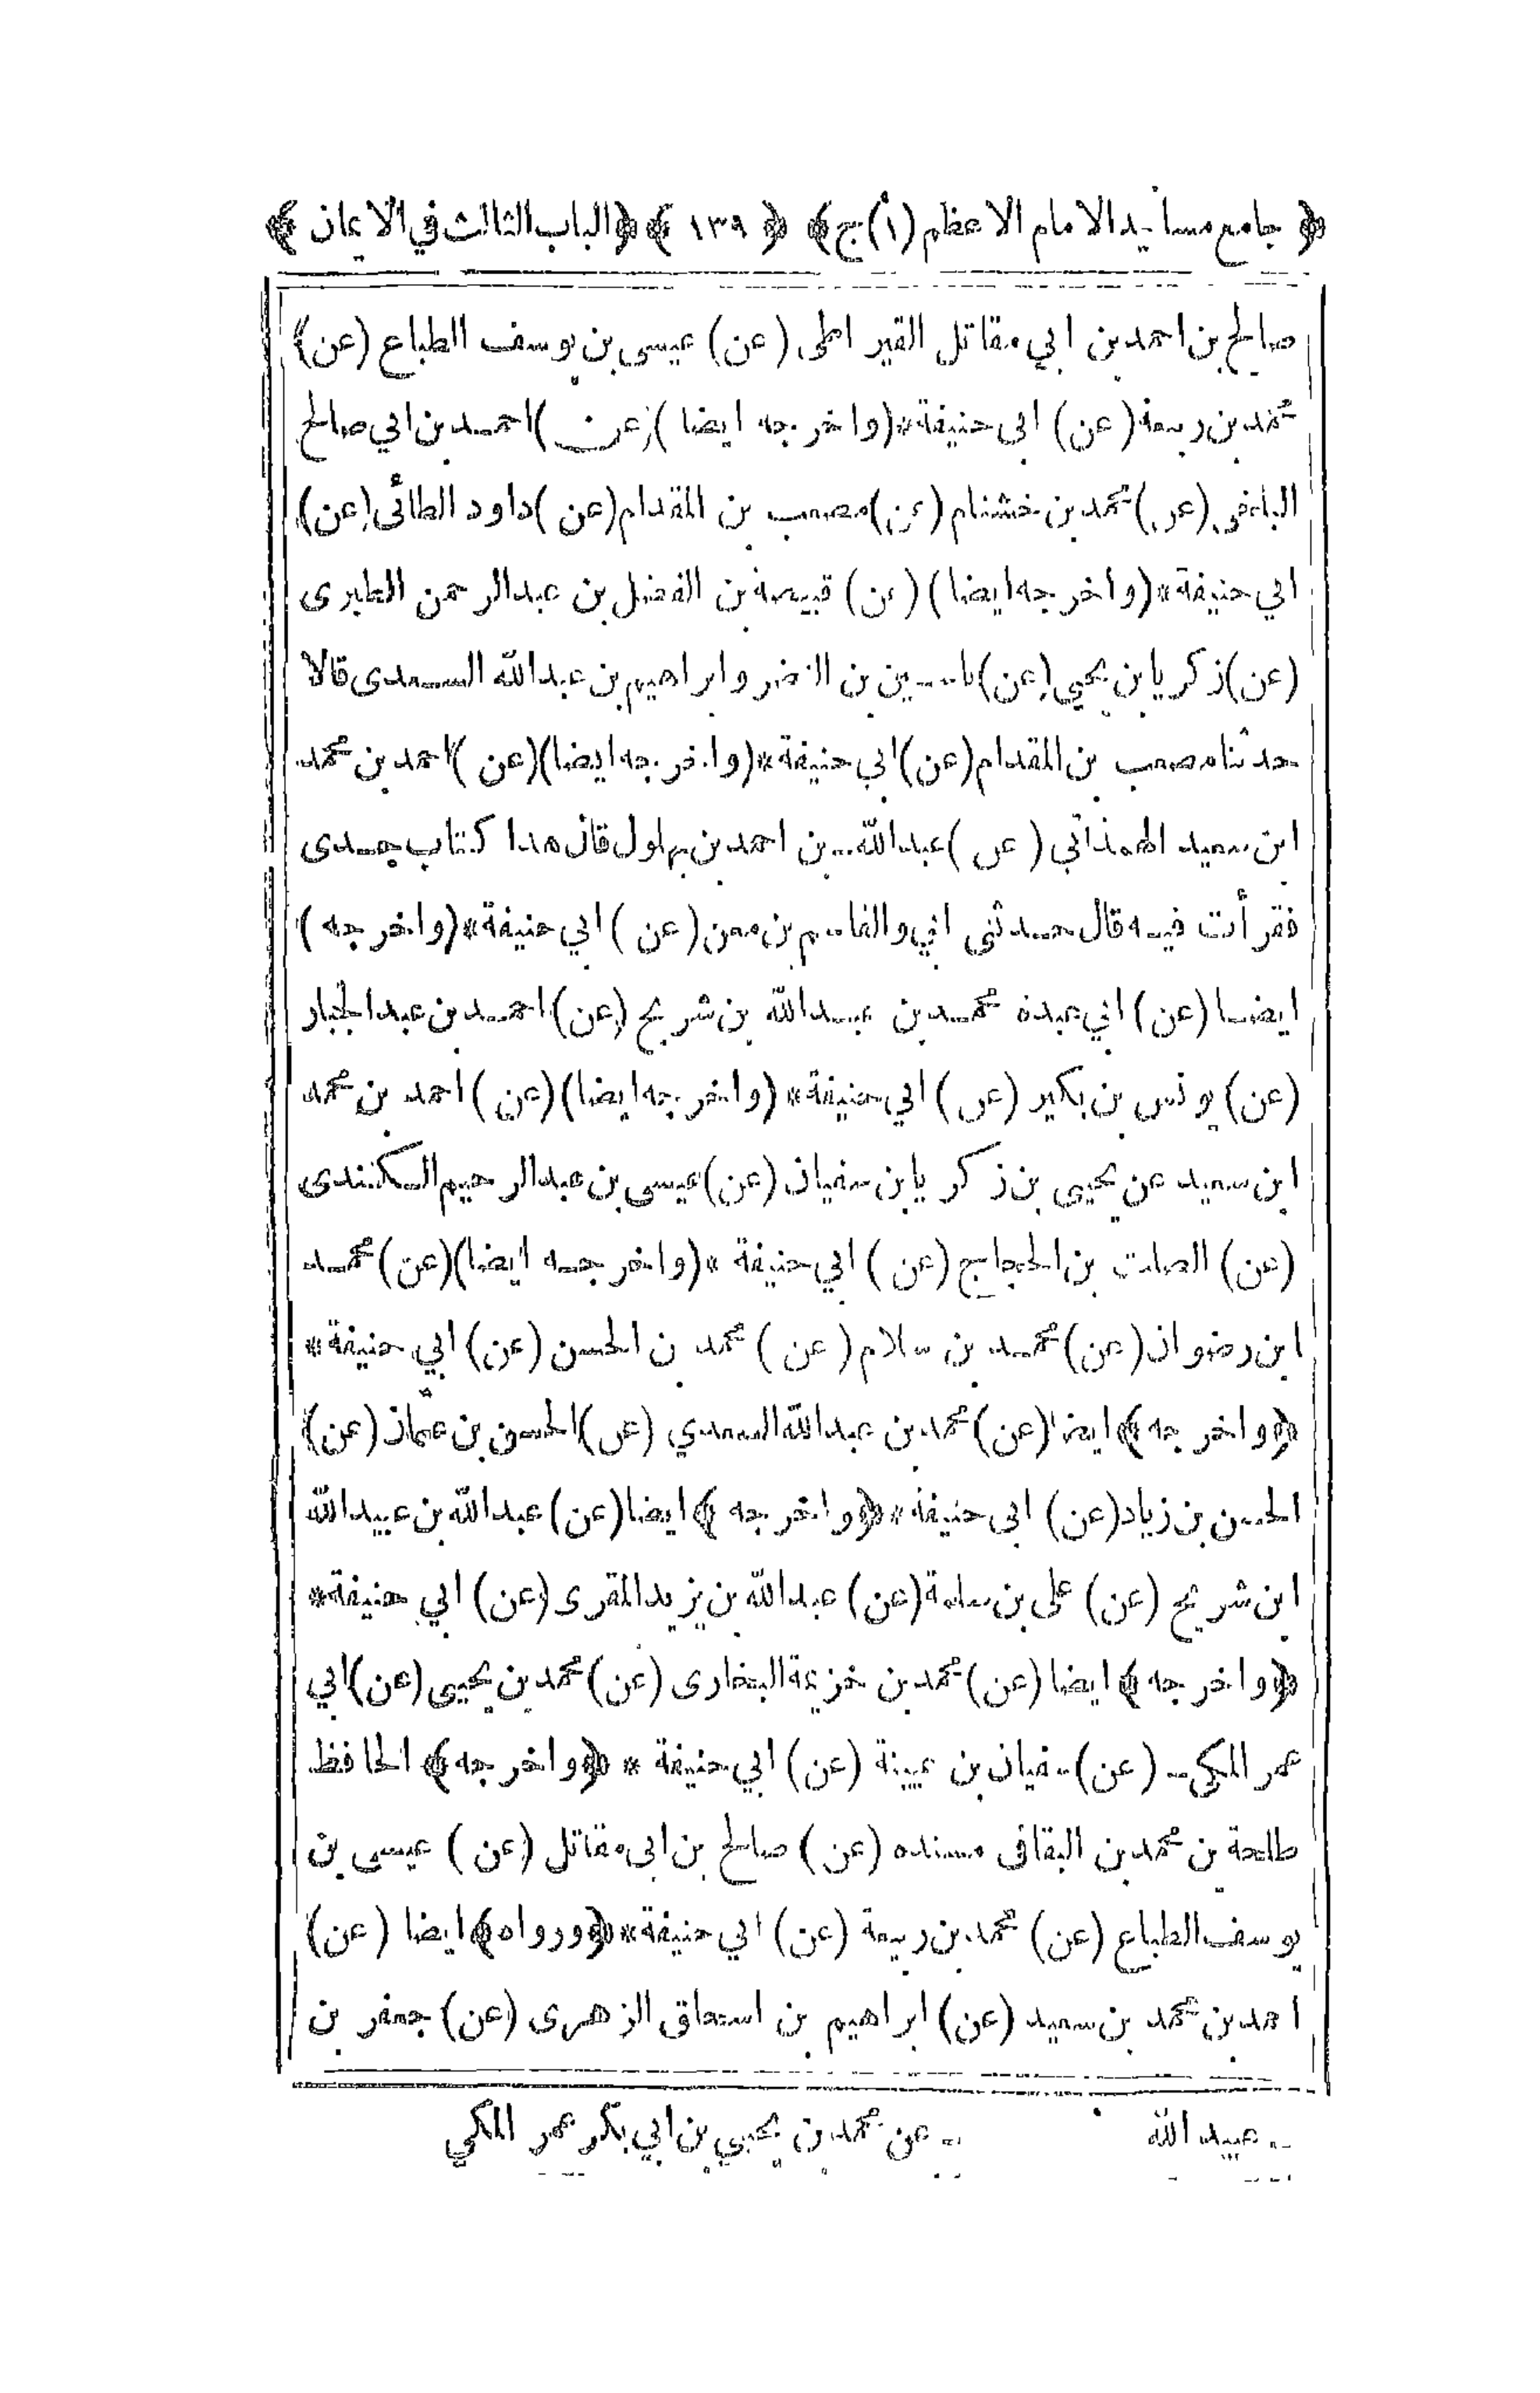 ﴿ جامع مسانيد الامام الاعظم (١) ج ﴾ ﴿ ١٣٩ ﴾ ﴿ الباب الثالث في الايمان ﴾
صالح بن احمد بن ابي مقاتل القيراطى (عن) عيسى بن يوسف الطباع (عن)
محمد بن ربيعة (عن) ابى حنيفة * (واخرجه ايضا) (عن) احمد بن ابي صالح
البلخى (عن) محمد بن خشنام (عن) مصعب بن المقدام (عن) داود الطائى (عن)
ابي حنيفة * (واخرجه ايضا) (عن) قبيصة بن الفضل بن عبدالرحمن الطبرى
(عن) زكريا بن يحيى (عن) ياسين بن النضر وابراهيم بن عبدالله السعدى قالا
حدثنا مصعب بن المقدام (عن) ابي حنيفة * (واخرجه ايضا) (عن) احمد بن محمد
ابن سعيد الهمذاني (عن) عبدالله بن احمد بن بهلول قال هذا كتاب جدى
فقرأت فيه قال حدثنى ابي والقاسم بن معن (عن) ابي حنيفة * (واخرجه)
ايضا (عن) ابي عبدة محمد بن عبدالله بن شريح (عن) احمد بن عبدالجبار
(عن) يونس بن بكير (عن) ابي حنيفة * (واخرجه ايضا) (عن) احمد بن محمد
ابن سعيد عن يحيى بن زكريا بن سفيان (عن) عيسى بن عبدالرحيم الكندى
(عن) الصلت بن الحجاج (عن) ابي حنيفة * (واخرجه ايضا) (عن) محمد
ابن رضوان (عن) محمد بن سلام (عن) محمد بن الحسن (عن) ابي حنيفة *
﴿واخرجه﴾ ايضا (عن) محمد بن عبدالله السعدي (عن) الحسن بن عثمان (عن)
الحسن بن زياد (عن) ابى حنيفة * ﴿واخرجه﴾ ايضا (عن) عبدالله بن عبيدالله
ابن شريح (عن) على بن سلمة (عن) عبدالله بن يزيد المقرى (عن) ابي حنيفة *
﴿واخرجه﴾ ايضا (عن) محمد بن خزيمة البخارى (عن) محمد بن يحيى (عن) ابي
عمر المكى (عن) سفيان بن عيينة (عن) ابي حنيفة * ﴿واخرجه﴾ الحافظ
طلحة بن محمد بن البقافى مسنده (عن) صالح بن ابى مقاتل (عن) عيسى بن
يوسف الطباع (عن) محمد بن ربيعة (عن) ابي حنيفة * ﴿ورواه﴾ ايضا (عن)
احمد بن محمد بن سعيد (عن) ابراهيم بن اسحاق الزهرى (عن) جعفر بن
عبيد الله
عن محمد بن يحيى بن ابي بكر عمر المكي